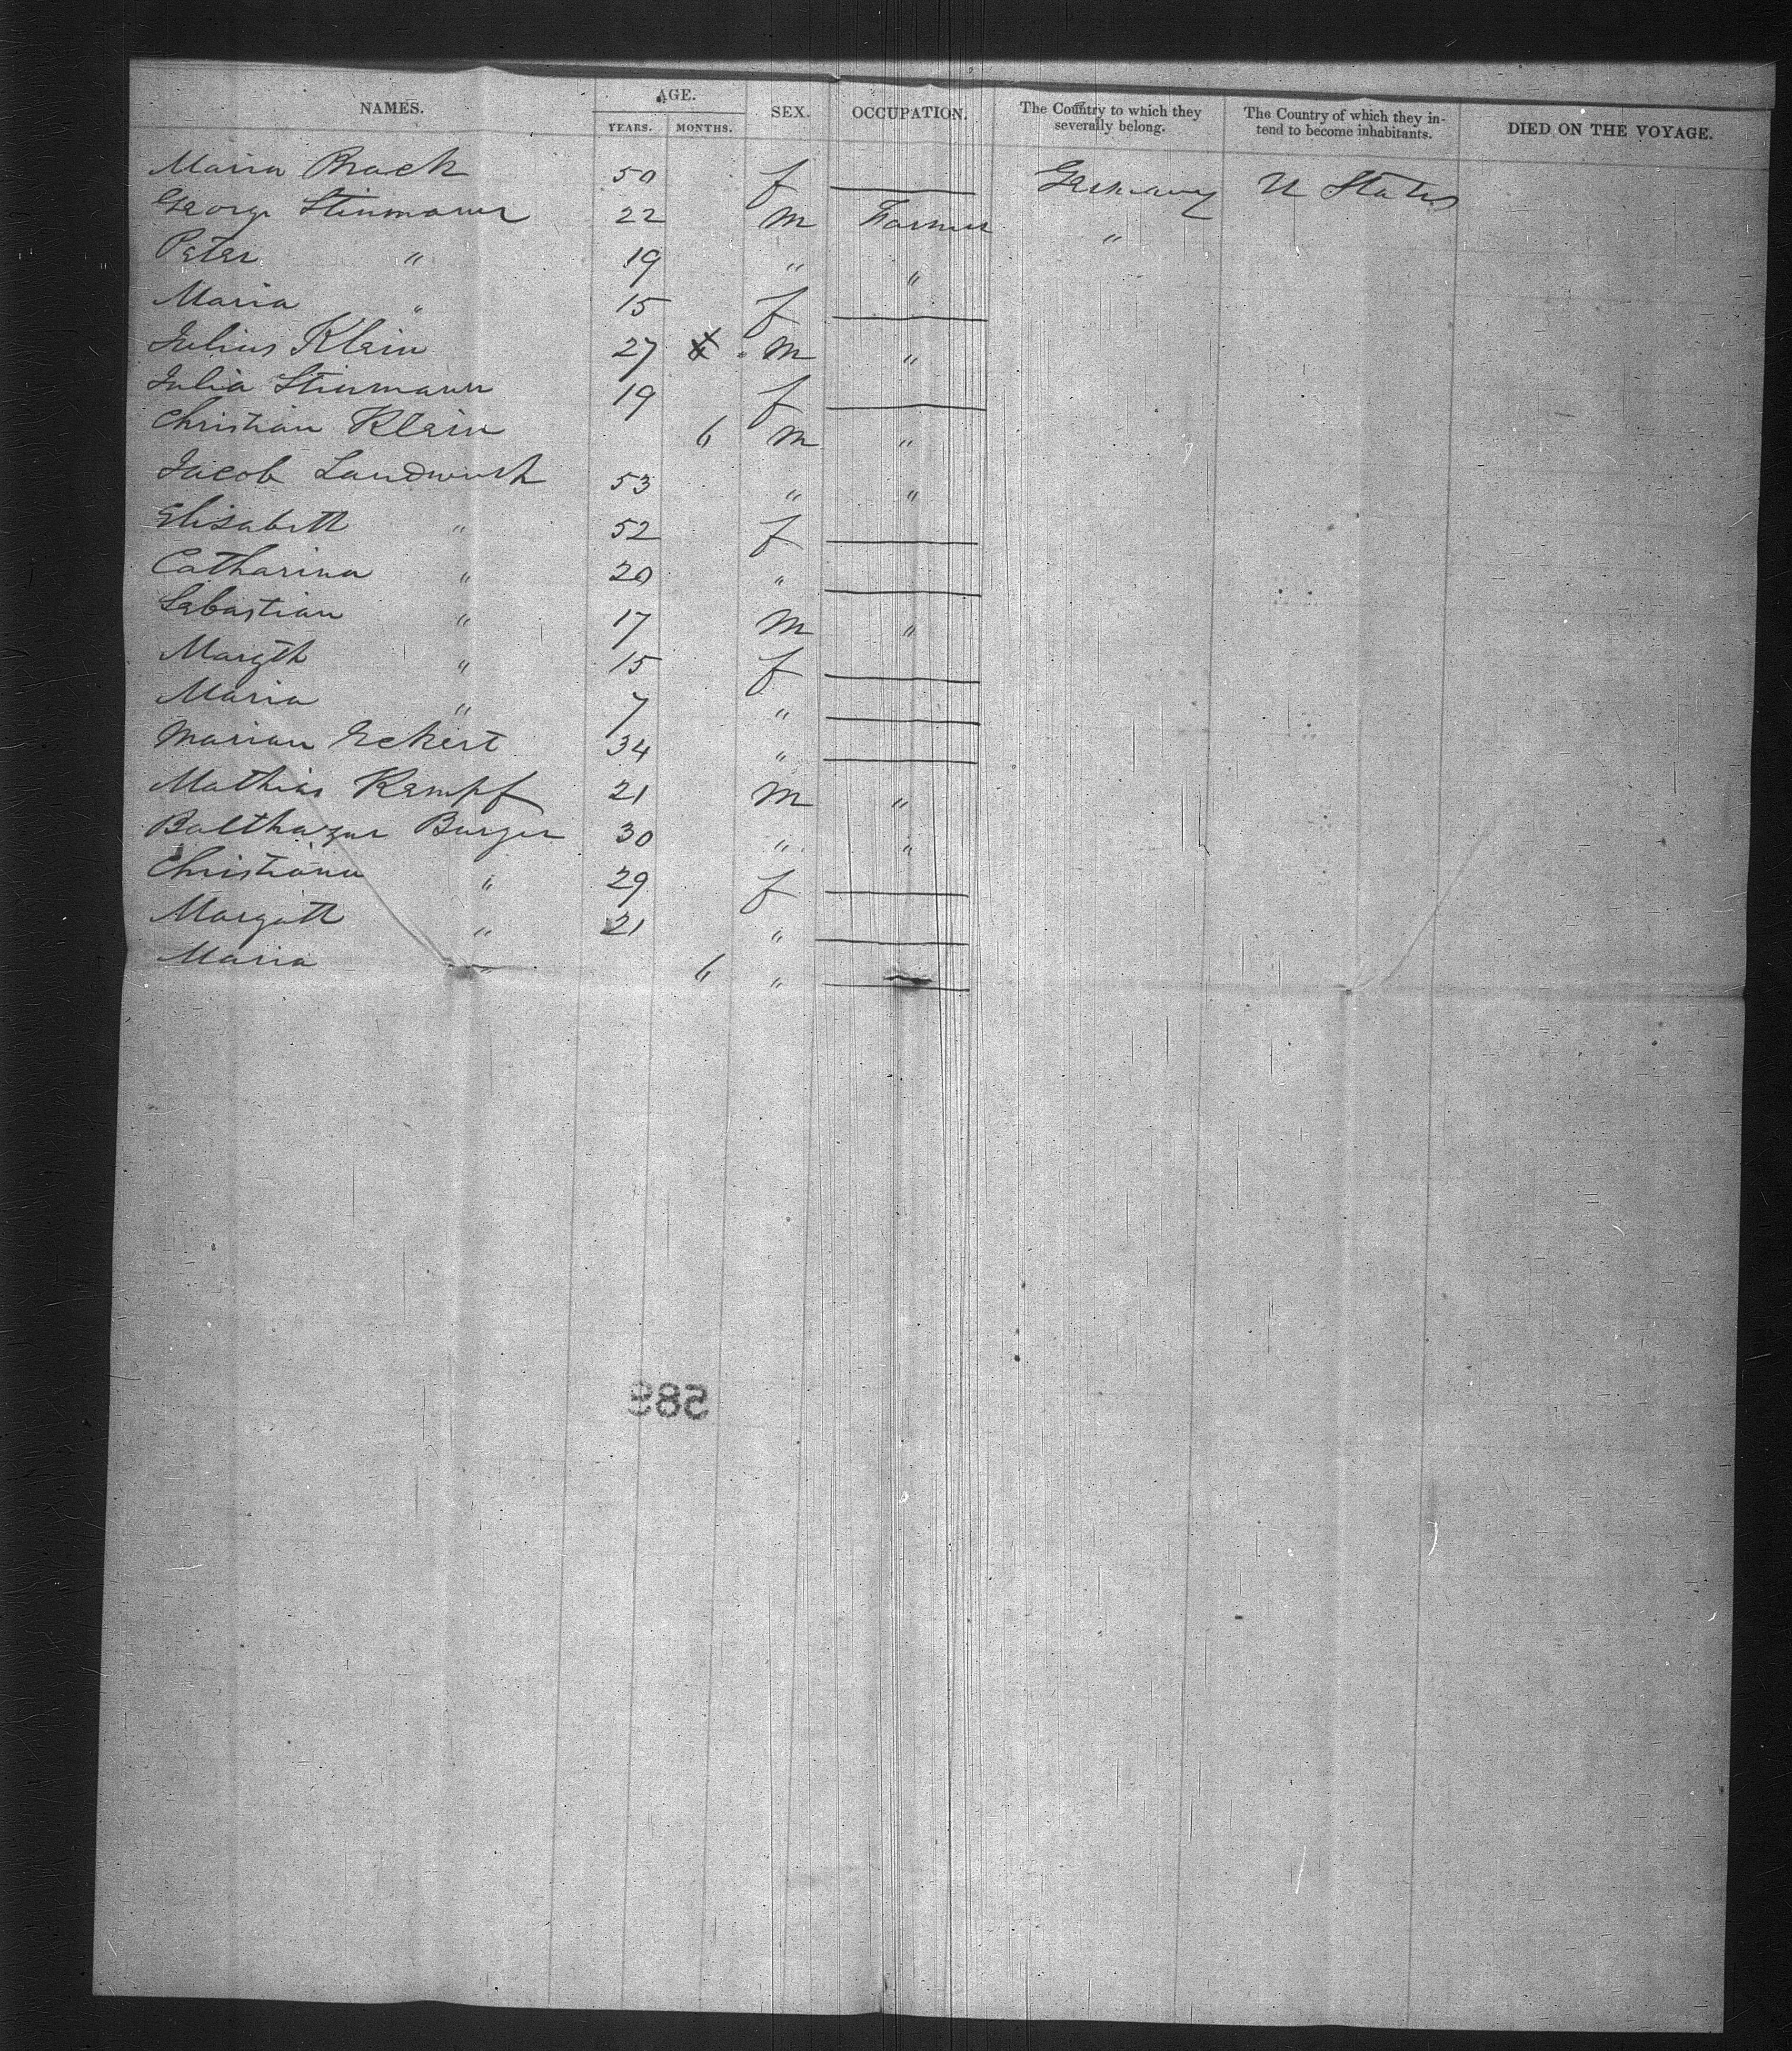 NAMES. AGE. SEX. OCCUPATION. The Country to which they severally belong. The Country of which they intend to become inhabitants. DIED ON THE VOYAGE.
YEARS. MONTHS.
Maria Brack 50 f Germany U States
George Stinmann 22 M Farmer "
Peter " 19 " "
Maria " 15 f
Julius Klein 27 M "
Julia Stinmann 19 f
Christian Klein 6 M "
Jacob Landwirth 53 " "
Elisabeth " 52 f
Catharina " 20 "
Sebastian " 17 M "
Margth " 15 f
Maria " 7 "
Marian Eckert 34 "
Mathias Kempf 21 M "
Balthazar Burger 30 " "
Christiana " 29 f
Margath " 21 "
Maria " 6 "
589